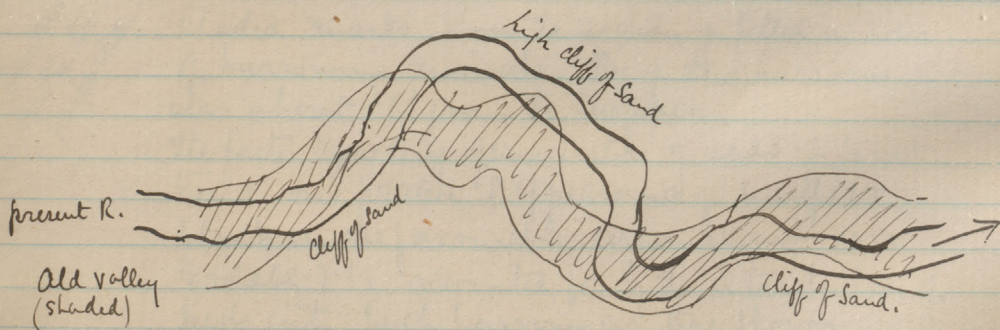 high cliff of Sand
present R.
cliff of Sand
Old valley
(shaded)
cliff of Sand.